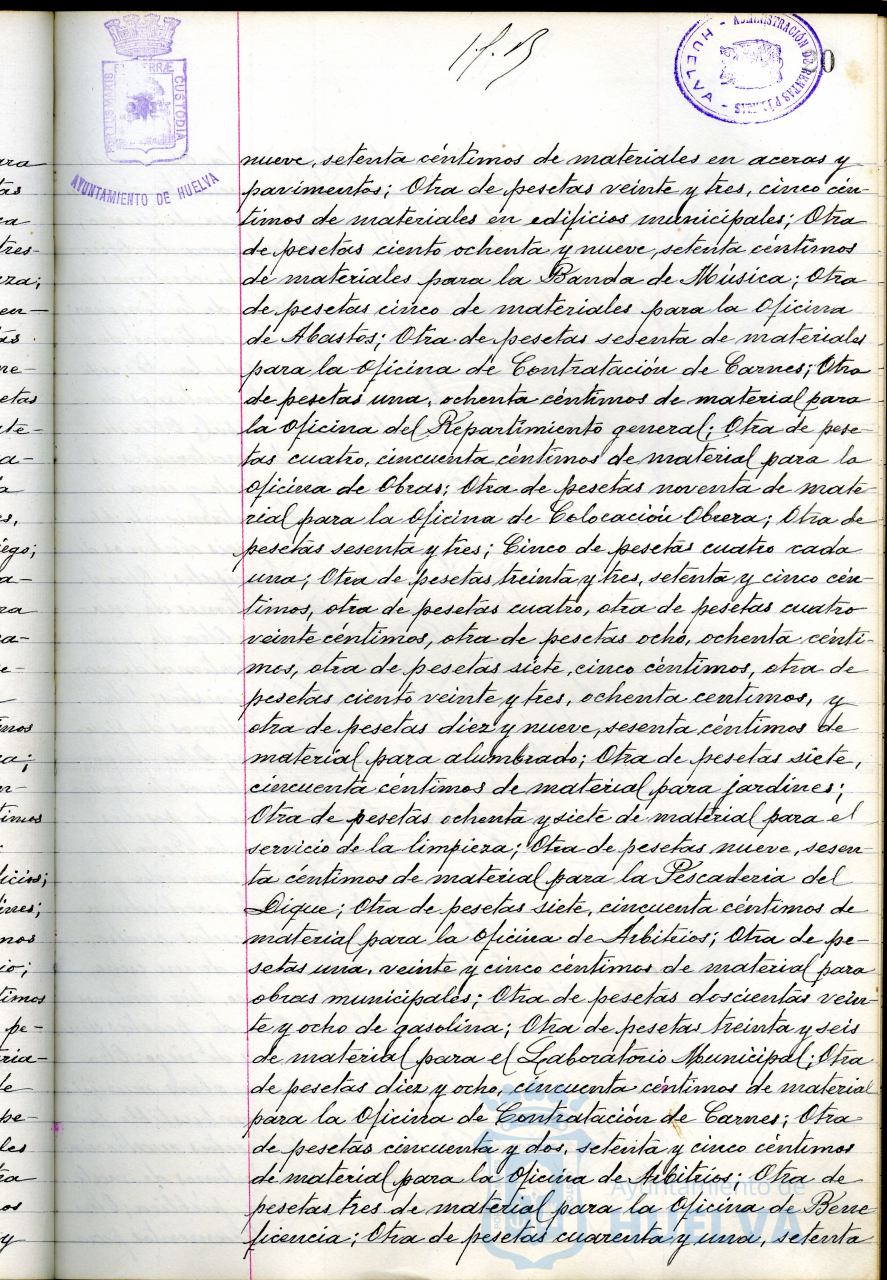 PORTUS MARIS ET TERRÆ CUSTODIA
AYUNTAMIENTO DE HUELVA
ADMINISTRACIÓN DE RENTAS
HUELVA
nueve, setenta céntimos de materiales en aceras y
pavimentos; Otra de pesetas veinte y tres, cinco cén-
timos de materiales en edificios municipales; Otra
de pesetas ciento ochenta y nueve, setenta céntimos
de materiales para la Banda de Música; Otra
de pesetas cinco de materiales para la Oficina
de Abastos; Otra de pesetas sesenta de materiales
para la Oficina de Contratación de Carnes; Otra
de pesetas una, ochenta céntimos de material para
la Oficina del Repartimiento general; Otra de pese-
tas cuatro, cincuenta céntimos de material para la
Oficina de Obras; Otra de pesetas noventa de mate-
rial para la Oficina de Colocación Obrera; Otra de
pesetas sesenta y tres; Cinco de pesetas cuatro cada
una; Otra de pesetas treinta y tres, setenta y cinco cén-
timos, otra de pesetas cuatro, otra de pesetas cuatro
veinte céntimos, otra de pesetas ocho, ochenta cénti-
mos, otra de pesetas siete, cinco céntimos, otra de
pesetas ciento veinte y tres, ochenta centimos, y
otra de pesetas diez y nueve, sesenta céntimos de
material para alumbrado; Otra de pesetas siete,
cincuenta céntimos de material para jardines;
Otra de pesetas ochenta y siete de material para el
servicio de la limpieza; Otra de pesetas nueve, sesen-
ta céntimos de material para la Pescaderia del
Dique; Otra de pesetas siete, cincuenta céntimos de
material para la Oficina de Arbitrios; Otra de pe-
setas una, veinte y cinco céntimos de material para
obras municipales; Otra de pesetas doscientas vein-
te y ocho de gasolina; Otra de pesetas treinta y seis
de material para el Laboratorio Municipal; Otra
de pesetas diez y ocho, cincuenta céntimos de material
para la Oficina de Contratación de Carnes; Otra
de pesetas cincuenta y dos, setenta y cinco céntimos
de material para la Oficina de Arbitrios; Otra de
pesetas tres de material para la Oficina de Bene
ficencia; Otra de pesetas cuarenta y una, setenta
Ayuntamiento de
HUELVA